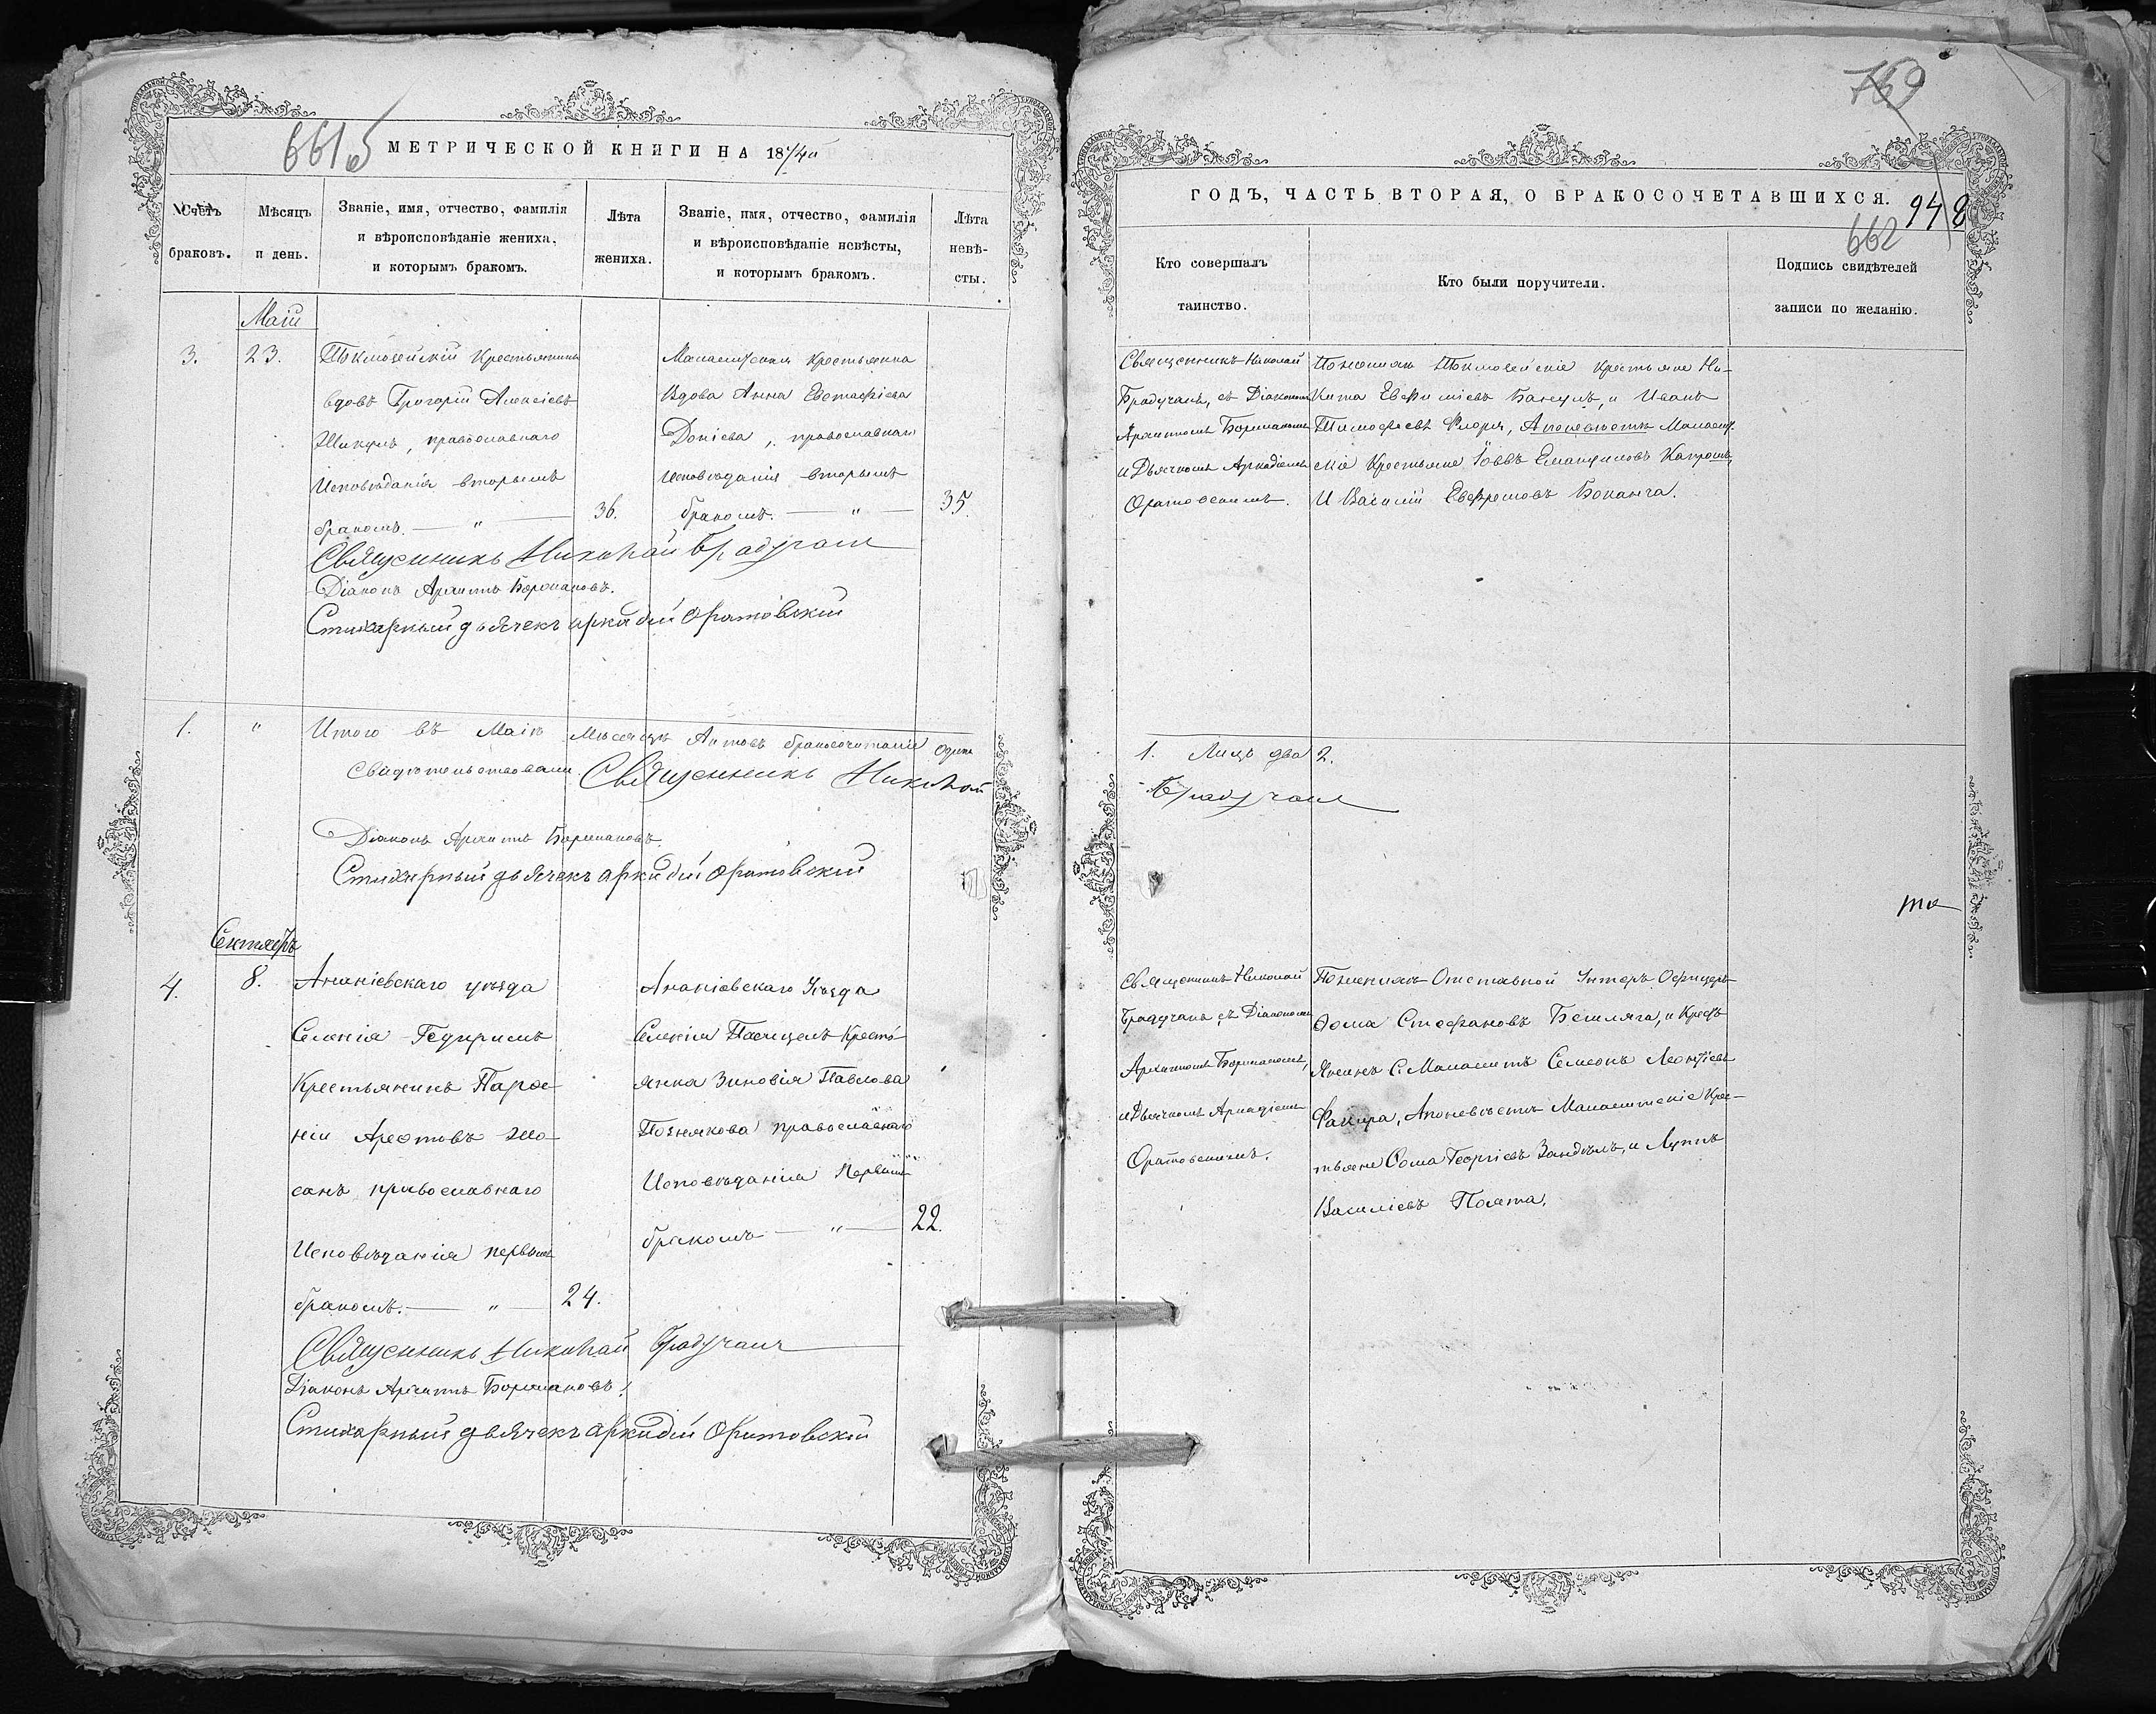 661 б
МЕТРИЧЕСКОЙ КНИГИ НА 1874й
Счетъ браковъ.
Мѣсяцъ и день.
Званіе, имя, отчество, фамилія
и вѣроисповѣданіе жениха,
и которымъ бракомъ.
Лѣта
жениха.
Званіе, имя, отчество, фамилія
и вѣроисповѣданіе невѣсты,
и которымъ бракомъ.
Лѣта
невѣ-
сты.
Маій
3.
23.
Крестьянинъ
вдовъ Григорій Алексіевъ
православнаго
Исповѣданія вторымъ
бракомъ. — „ —
36.
Крестьянка
Вдова Анна Евстафіева
Доніева, православнаго
исповѣданія вторымъ
бракомъ. — „ —
35.
Священникъ Николай Брадучанъ
Діаконъ Архиппъ
Стихарный дьячекъ Аркадій Оратовскій
1.
„
Итого въ Маіѣ Мѣсяцѣ Актовъ бракосочитанія одинъ
Свидѣтельствовали Священникъ Николай
Діаконъ Архиппъ
Стихарный дьячекъ Аркадій Оратовскій
Сентябрь
4.
8.
Ананіевскаго уѣзда
Селенія Гедиримъ
Крестьянинъ Парѳе-
ній
православнаго
Исповѣданія первымъ
бракомъ. — „ —
24.
Ананіевскаго Уѣзда
Селенія Пасицелъ Кресть-
янка Зиновія Павлова
Познякова православнаго
Исповѣданія Первымъ
бракомъ — „ —
22.
Священникъ Николай Брадучанъ
Діаконъ Архиппъ
Стихарный дьячекъ Аркадій Оратовскій
759
ГОДЪ, ЧАСТЬ ВТОРАЯ, О БРАКОСОЧЕТАВШИХСЯ.
948
662
Кто совершалъ
таинство.
Кто были поручители.
Подпись свидѣтелей
записи по желанію.
Священникъ Николай
Брадучанъ, съ Діакономъ
Архиппомъ
и Дьячкомъ Аркадіемъ
Оратовскимъ.
По женихѣ крестьяне Ни-
кита Евѳиміевъ и Иванъ
Тимофіевъ Флоря, А по невѣстѣ
Крестьяне Іоввъ
И Василій Боканча.
1. Лицъ два 2.
Брадучанъ
Священникъ Николай
Брадучанъ, съ Діакономъ
Архиппомъ
и Дьячкомъ Аркадіемъ
Оратовскимъ.
По женихѣ Отставной Унтеръ Офицеръ
Ѳома Стефановъ Бешляга, и Кресть-
янинъ С. Семеонъ Леонтіевъ
А по невѣстѣ Крес-
тьяне Ѳома Георгіевъ и Луппъ
Василіевъ